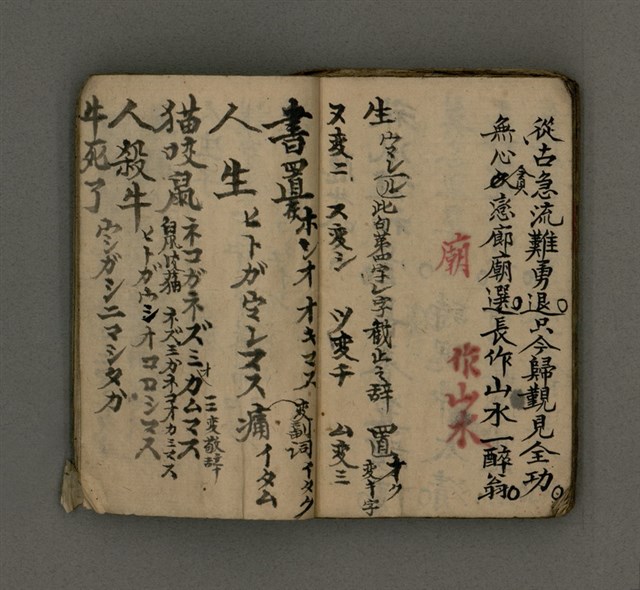 從古急流難勇退。只今歸觀見全功。
無心貪戀廊廟選。長作山水一醉翁。
廟 作山水
生 ウマレル此句第四字レ字截止之辞 置オク変キ字
ヌ変ニ ス変シ ツ変チ ム変ミ
書置 ホンオオキマス 変副詞イタク
人生 ヒトガウマレマス 痛イタム
猫咬鼠 ネコガネズミオカムマス 三変敬辞
白鼠 猫 ネズミガネコオカミマス
人殺牛 ヒトガウシオコロシマス
牛死了 ウシガシニマシタガ